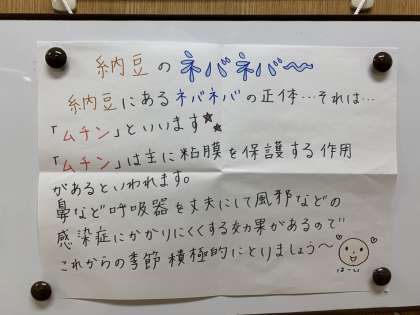 納豆のネバネバ〜
納豆にあるネバネバの正体…それは…
「ムチン」といいます★★
「ムチン」は主に粘膜を保護する作用
があるといわれます。
鼻など呼吸器を丈夫にして風邪などの
感染症にかかりにくくする効果があるので
これからの季節積極的にとりましょう〜
はーい